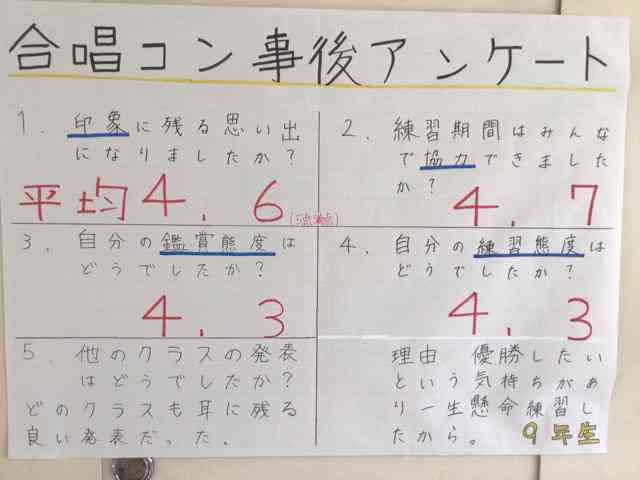 合唱コン事後アンケート
1. 印象に残る思い出
になりましたか?
平均4.6
(5点満点)
2. 練習期間はみんな
で協力できました
か?
4.7
3. 自分の鑑賞態度は
どうでしたか?
4.3
4. 自分の練習態度は
どうでしたか?
4.3
5. 他のクラスの発表
はどうでしたか?
どのクラスも耳に残る
良い発表だった.
理由 優勝したい
という気持ちがあ
り一生懸命練習し
たから。
9年生